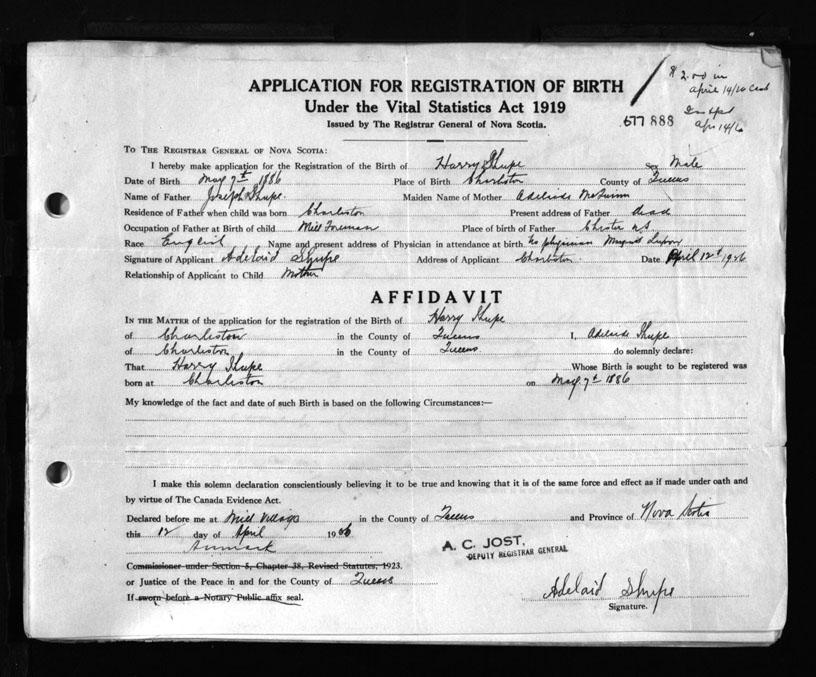 APPLICATION FOR REGISTRATION OF BIRTH
Under the Vital Statistics Act 1919
Issued by The Registrar General of Nova Scotia.
$2.00 in
April 14/26
577 888
TO THE REGISTRAR GENERAL OF NOVA SCOTIA:
I hereby make application for the Registration of the Birth of Harry Shupe Sex Male
Date of Birth May 7th 1886 Place of Birth Charleston County of Queens
Name of Father Joseph Shupe. Maiden Name of Mother Adelaide
Residence of Father when child was born Charleston Present address of Father dead
Occupation of Father at Birth of child Mill Foreman Place of birth of Father Chester N.S
Race English Name and present address of Physician in attendance at birth No physician Margaret
Signature of Applicant Adelaid Shupe Address of Applicant Charleston Date April 12th 1926
Relationship of Applicant to Child Mother
AFFIDAVIT
IN THE MATTER of the application for the registration of the Birth of Harry Shupe
of Charleston in the County of Queens I, Adelaide Shupe
of Charleston in the County of Queens do solemnly declare:
That Harry Shupe Whose Birth is sought to be registered was
born at Charleston on May 7th 1886
My knowledge of the fact and date of such Birth is based on the following Circumstances:—
I make this solemn declaration conscientiously believing it to be true and knowing that it is of the same force and effect as if made under oath and
by virtue of The Canada Evidence Act.
Declared before me at Mill Village in the County of Queens and Province of Nova Scotia
this 12 day of April 1926
A. C. JOST,
DEPUTY REGISTRAR GENERAL
Commissioner under Section 5, Chapter 38, Revised Statutes, 1923.
or Justice of the Peace in and for the County of Queens
If sworn before a Notary Public affix seal.
Adelaid Shupe
Signature.